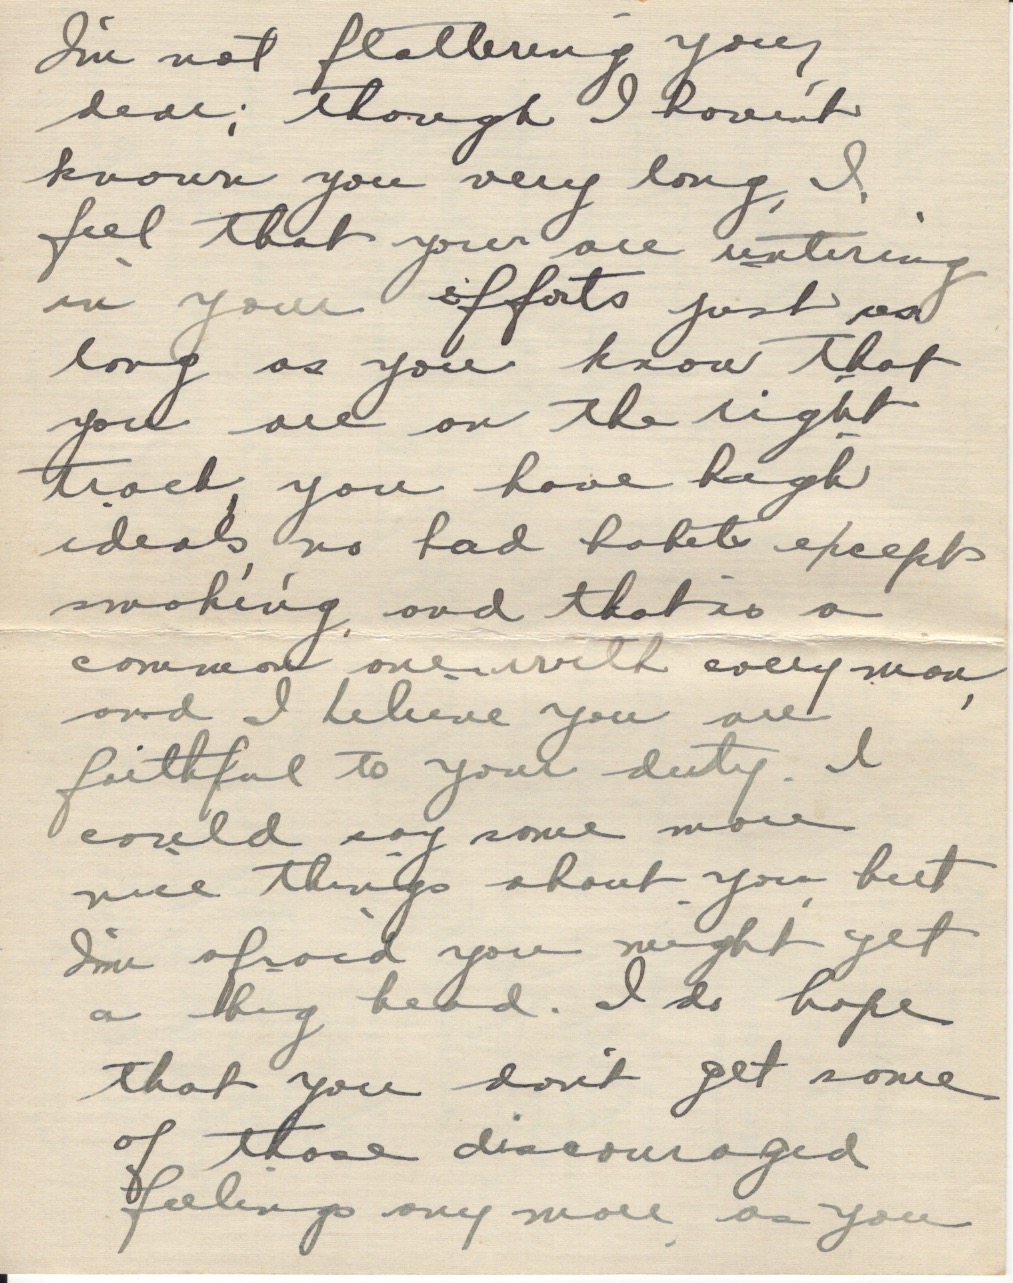 I'm not flattering you,
dear; though I haven't
known you very long, I
feel that your are untiring
in your efforts just as
long as you know that
you are on the right
track, you have high
ideals, no bad habits except
smoking, and that is a
common one with every man,
and I believe you are
faithful to your duty. I
could say some more
nice things about you, but
I'm afraid you might get
a big head. I do hope
that you don't get some
of those discouraged
feelings any more, as you